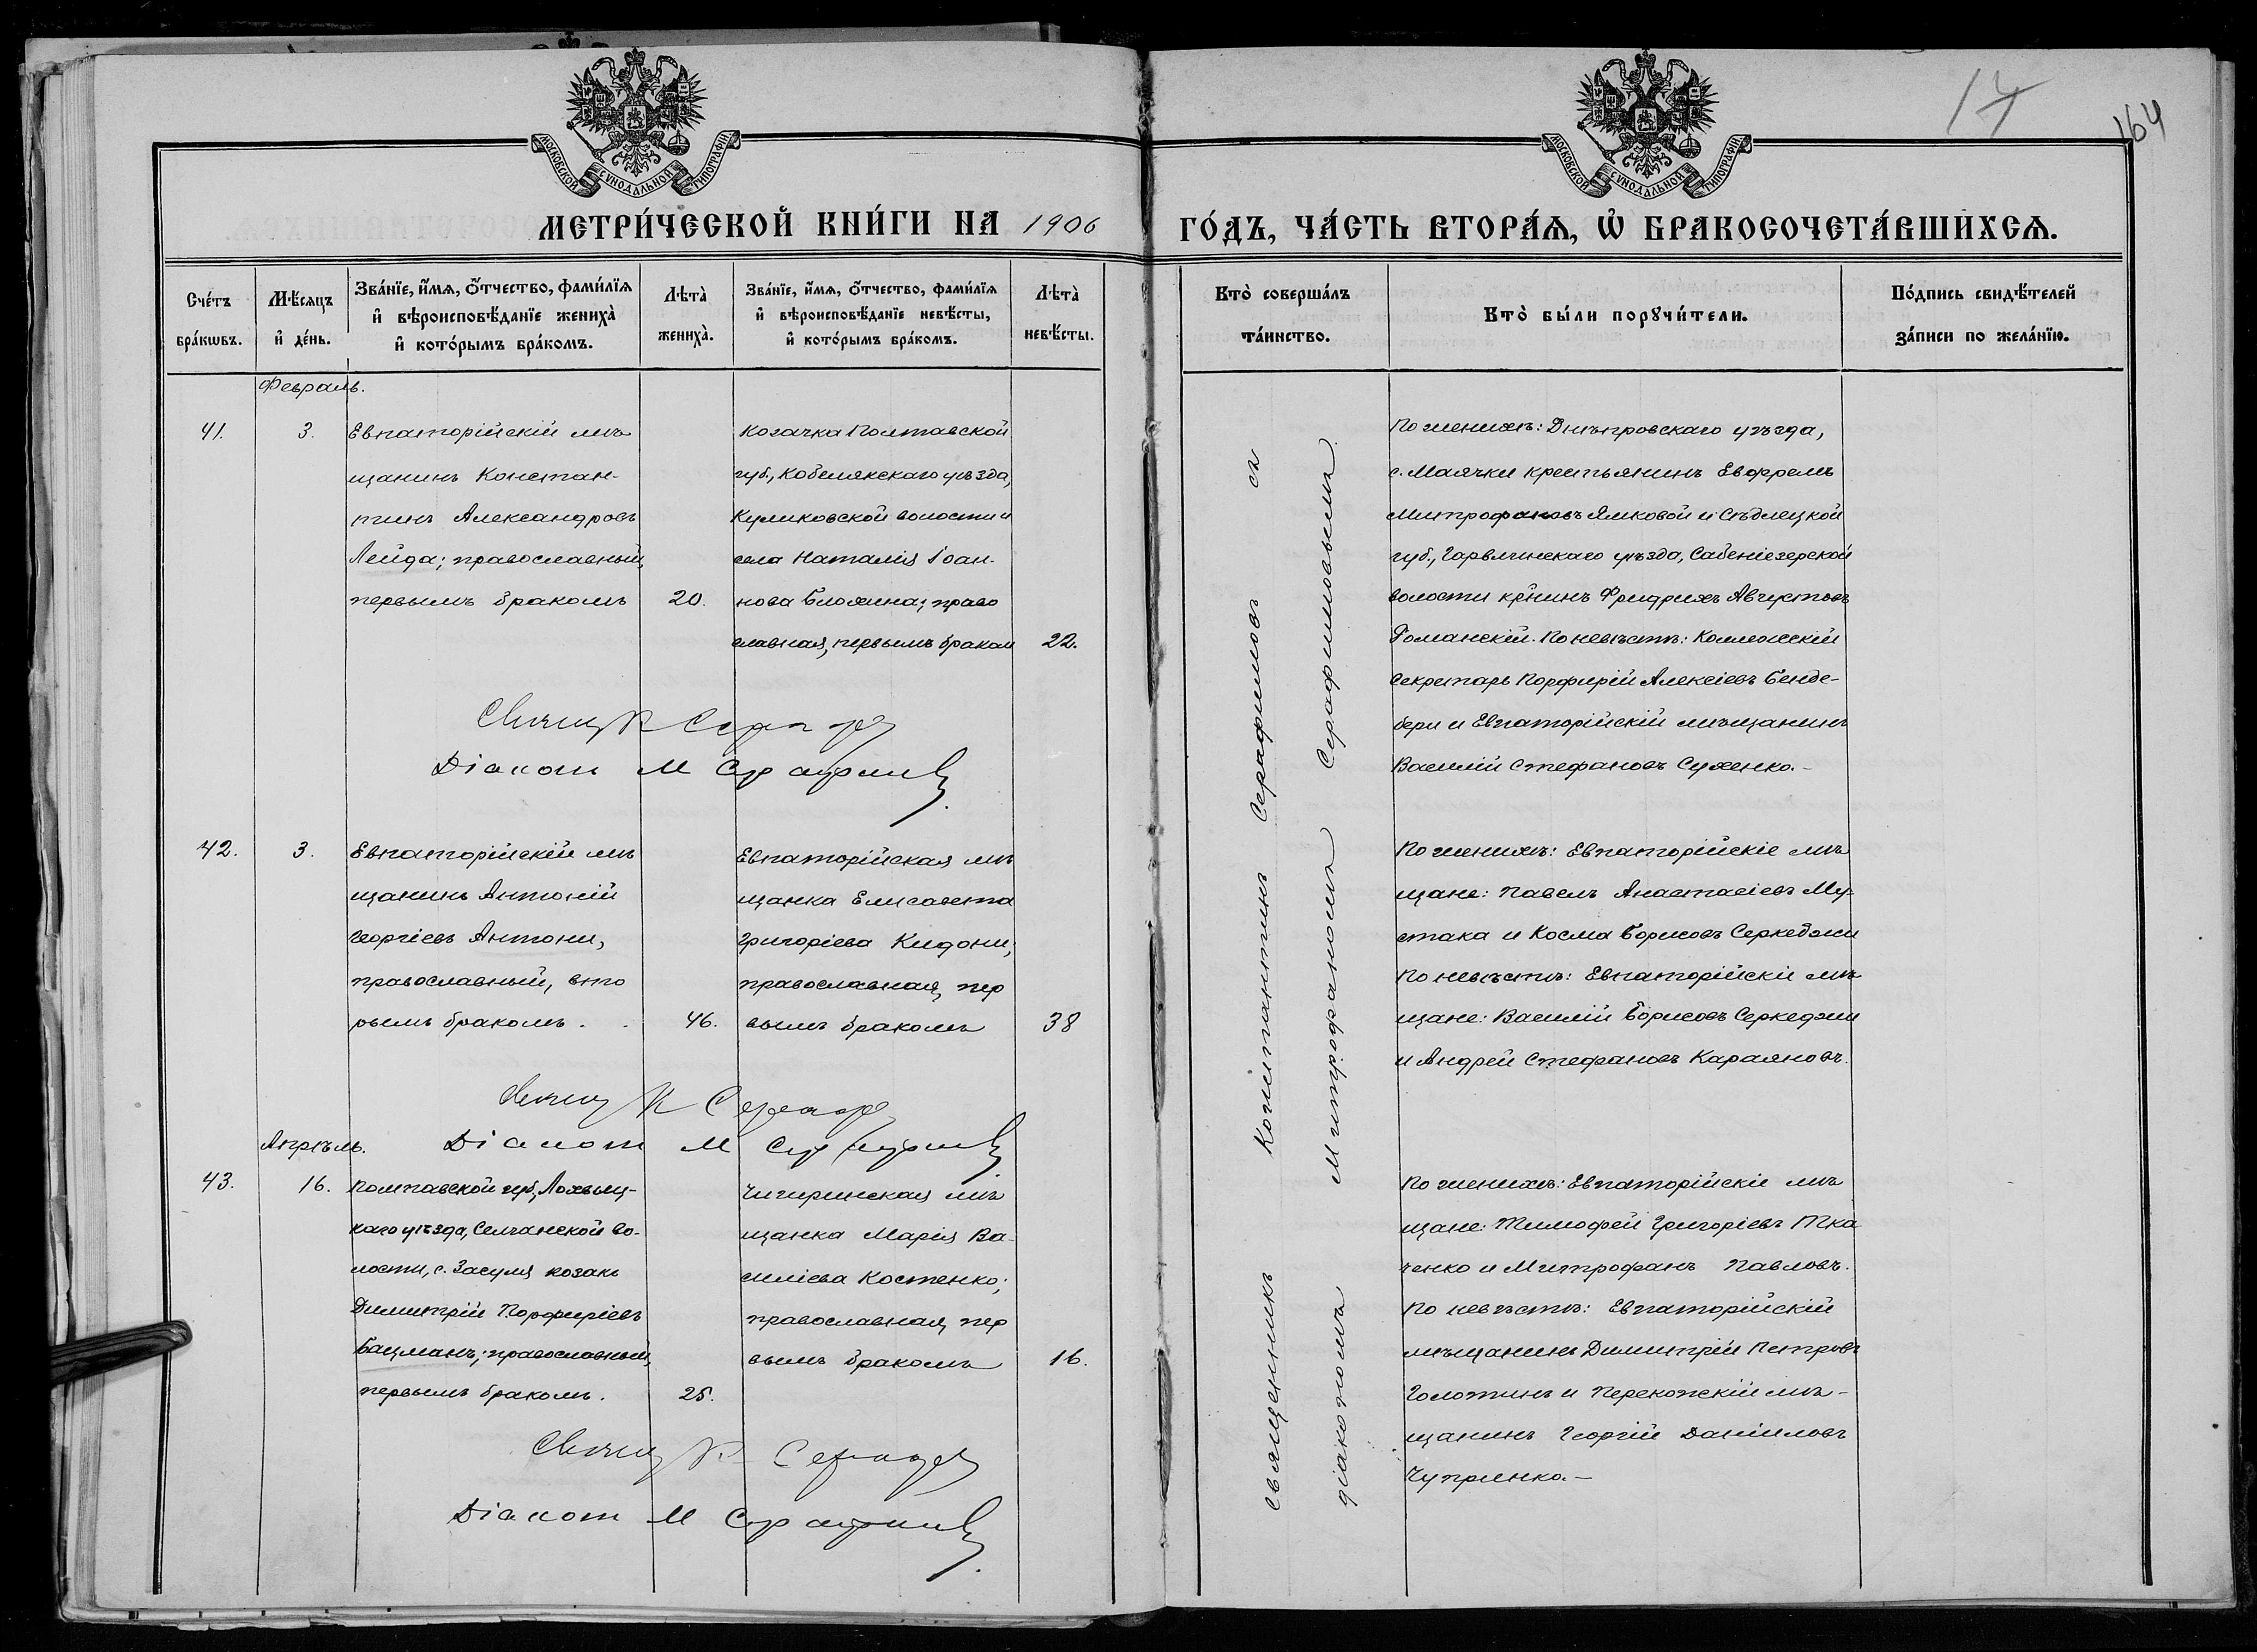 17
164
МОСКОВСКОЙ СѴНОДАЛЬНОЙ ТИПОГРАФІИ
МОСКОВСКОЙ СѴНОДАЛЬНОЙ ТИПОГРАФІИ
МЕТРИ́ЧЕСКОЙ КНИ́ГИ НА 1906 ГО́ДЪ, ЧА́СТЬ ВТОРА́Ѧ, Ѡ҆ БРАКОСОЧЕТА́ВШИХСѦ.
Сче́тъ
бра́кѡвъ.
Мѣ́сяцъ
и҆ де́нь.
Зва́нїе, и҆́мѧ, ѻ҆́тчество, фами́лїѧ
и҆ вѣроисповѣ́данїе жениха̀
и҆ кото́рымъ бра́комъ.
Лѣта̀
жениха̀.
Зва́нїе, и҆́мѧ, ѻ҆́тчество, фами́лїѧ
и҆ вѣроисповѣ́данїе невѣ́сты,
и҆ кото́рымъ бра́комъ.
Лѣта̀
невѣ́сты.
Кто̀ соверша́лъ
та́инство.
Кто̀ бы́ли порꙋчи́тели.
По́дпись свидѣ́телей
за́писи по жела́нїю.
Февраль.
41.
3.
Евпаторійскій мѣ
щанинъ Констан-
тинъ Александровъ
Лейда; православный,
первымъ бракомъ
20.
Козачка Полтавской
губ., Кобелякскаго уѣзда,
Куликовской волости и
села Наталія Іоан-
нова Блохина; право
славная, первымъ браком
22.
По женихѣ: Днѣпровскаго уѣзда,
с. Маячки крестьянинъ Евфремъ
Митрофановъ Ямковой и Сѣдлецкой
губ., Гарвлинскаго уѣзда, Сабеніезерской
волости кр̃нинъ Фридрихъ Августовъ
Романскій. По невѣстѣ: Коллежскій
секретарь Порфирій Алексіевъ Бенде-
бери и Евпаторійскій мѣщанинъ
Василій Стефановъ Суженко.-
Священ К Сераф
Діакон М Серафимов
42.
3.
Евпаторійскій мѣ
щанинъ Антоній
Георгіевъ Антони,
православный, вто
рымъ бракомъ.
46.
Евпаторійская мѣ
щанка Елисавета
Григоріева Кидони;
православная, пер
вымъ бракомъ
38
По женихѣ: Евпаторійскіе мѣ
щане: Павелъ Анастасіевъ Му-
стака и Косма Борисовъ Серкеджи
По невѣстѣ: Евпаторійскіи мѣ
щане: Василій Борисовъ Серкеджи
и Андрей Стефановъ Караяновъ.
Священ К Сераф
Діакон М Серафимов
Апрѣль.
43.
16.
Полтавской губ., Лохвиц-
каго уѣзда, Сенчанской во-
лости, с. Засулья козакъ
Димитрій Порфиріевъ
Бацманъ; православный,
первымъ бракомъ.
25.
Чигиринская мѣ
щанка Марія Ва-
силіева Костенко;
православная, пер
вымъ бракомъ
16.
По женихѣ: Евпаторійскіе мѣ
щане: Тимофей Григоріевъ Тка
ченко и Митрофанъ Павловъ.
По невѣстѣ: Евпаторійскій
мѣщанинъ Димитрій Петровъ
Голотинъ и Перекопскій мѣ-
щанинъ Георгій Даніиловъ
Чупринко.-
Священ К Сераф
Діакон М Серафимов
священникъ Константинъ Серафимовъ съ
діакономъ Митрофаномъ Серафимовымъ